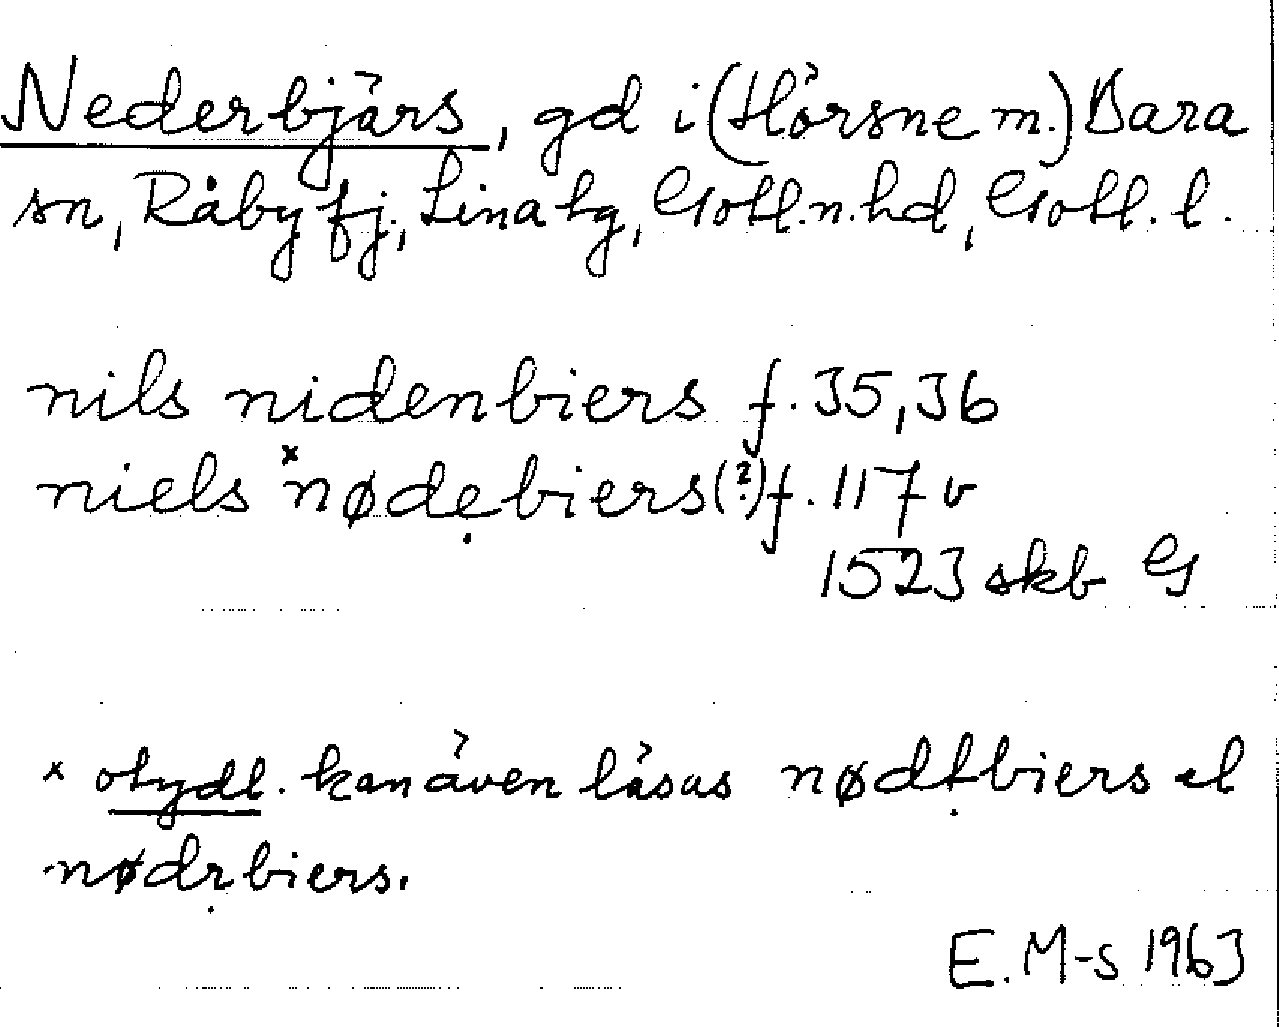 Nederbjärs, gd i (Hörsne m.) Bara
sn, Råby fj., Lina tg, Gotl. n. hd, Gotl. l.
nils nidenbiers f. 35, 36
niels ˣnødẹbiers (?) f. 117 v
1523 skb G
x otydl. kan även läsas nødṭbiers el
nødṛbiers.
E. M-s 1963